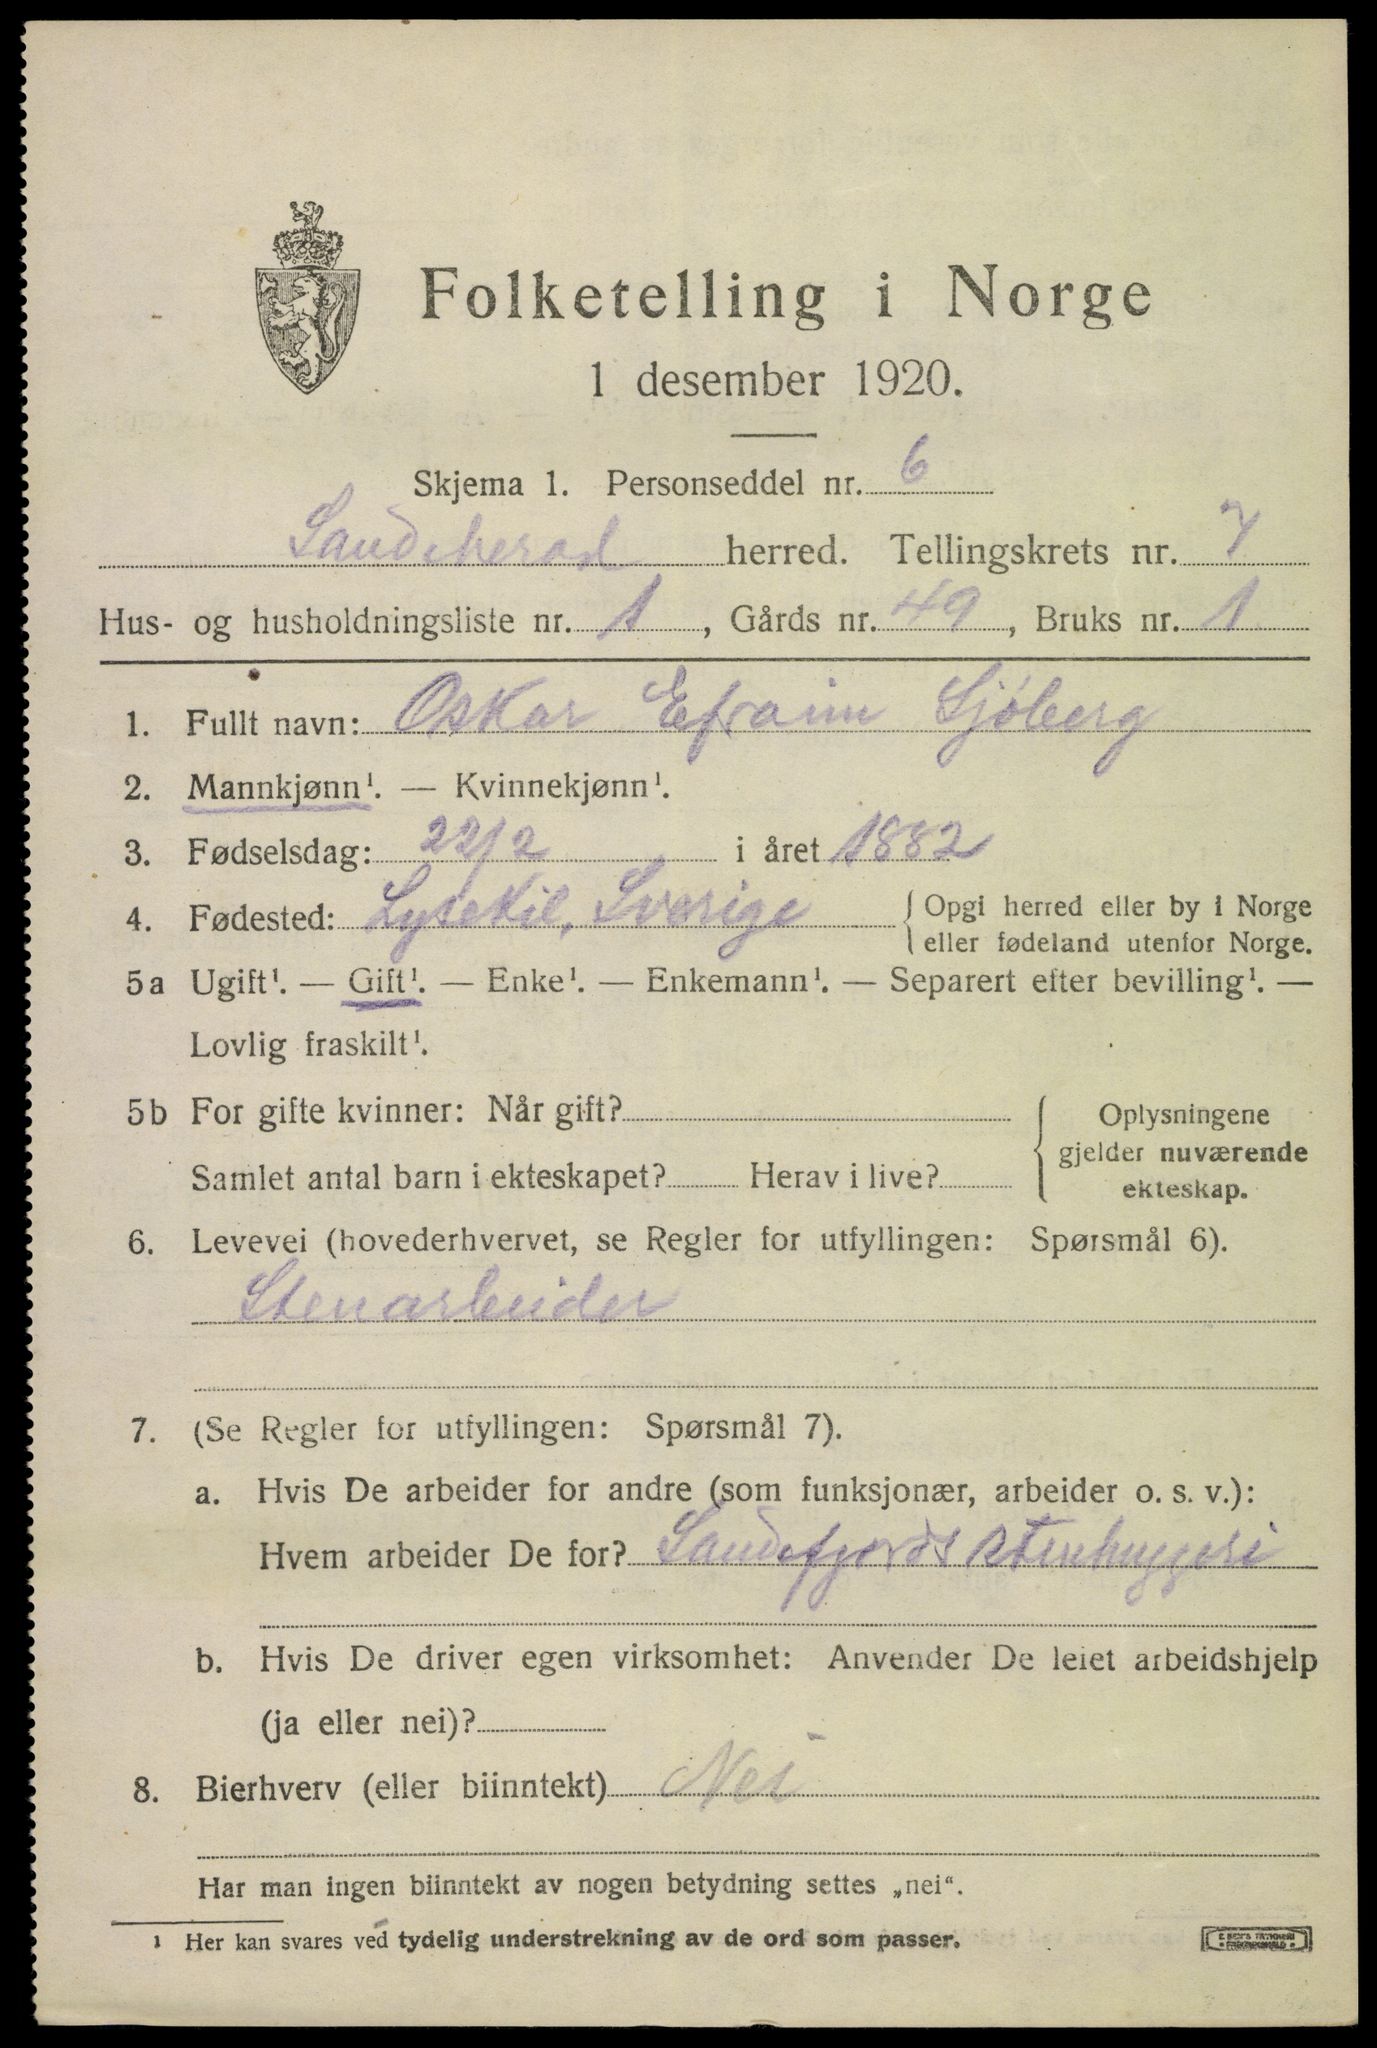 Folketelling i Norge
1 desember 1920.
Skjema 1. Personseddel nr. 6
Sandeherad herred. Tellingskrets nr. 7
Hus- og husholdningsliste nr. 1, Gårds nr. 49, Bruks nr. 1
1. Fullt navn: Oskar Efraim Sjöberg
2. Mannkjønn¹. — Kvinnekjønn¹.
3. Fødselsdag: 22/2 i året 1882
4. Fødested: Lysekil, Sverige { Opgi herred eller by i Norge
eller fødeland utenfor Norge.
5a Ugift¹. — Gift¹. — Enke¹. — Enkemann¹. — Separert efter bevilling¹. —
Lovlig fraskilt¹.
5b For gifte kvinner: Når gift?
Samlet antal barn i ekteskapet? Herav i live?
Oplysningene
gjelder nuværende
ekteskap.
6. Levevei (hovederhvervet, se Regler for utfyllingen: Spørsmål 6).
Stenarbeider
7. (Se Regler for utfyllingen: Spørsmål 7).
a. Hvis De arbeider for andre (som funksjonær, arbeider o. s. v.):
Hvem arbeider De for? Sandefjords stenhuggeri
b. Hvis De driver egen virksomhet: Anvender De leiet arbeidshjelp
(ja eller nei)?
8. Bierhverv (eller biinntekt) Nei
Har man ingen biinntekt av nogen betydning settes „nei“.
¹ Her kan svares ved tydelig understrekning av de ord som passer.